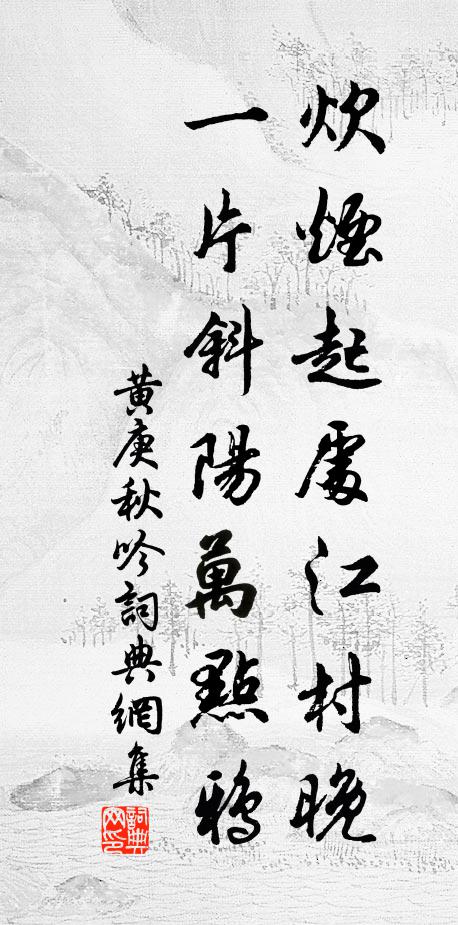 炊煙起處江村晚
一片斜陽萬點鴉
黃庚秋吟詞典網集
詞典網印